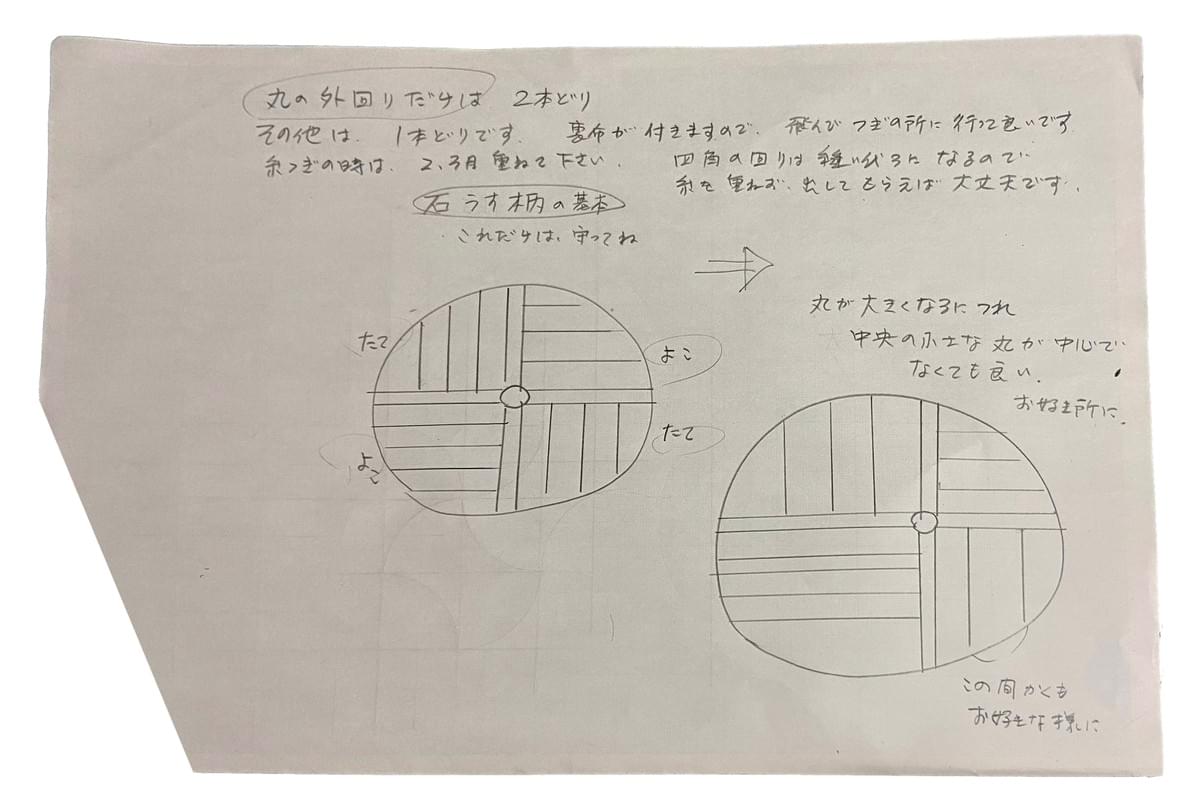 丸の外回りだけは 2本どり
その他は、1本どりです. 裏布が付きますので、飛んびつぎの所に行って良いです
糸つぎの時は、2、3目重ねて下さい.
四角の回りは縫い代ろになるので
糸を重ねず、出してもらえば大丈夫です.
石うす柄の基本
これだけは、守ってね
たて
よこ
よこ
たて
丸が大きくなるにつれ
中央の小さな丸が中心で
なくても良い.
お好き所に.
この間かくも
お好きな様に